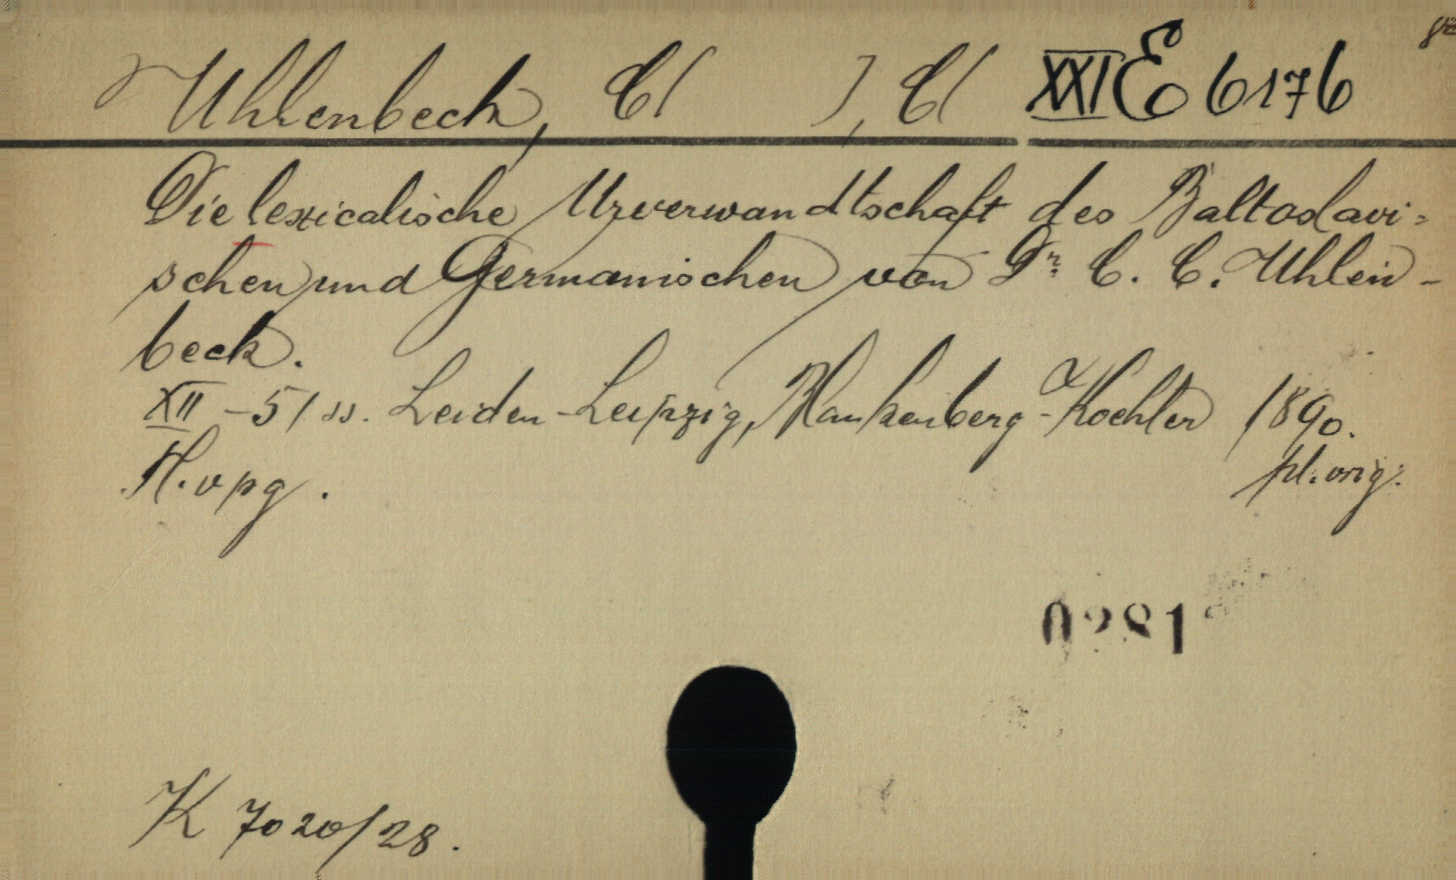 Uhlenbeck, C( ), C( XXI E 6176
Die lexicalische Urverwandtschaft des Baltoslavi=
schen und Germanischen von Dr. C. C. Uhlen-
beck.
XII - 51 ss. Leiden - Leipzig, Blankenberg - Koehler 1890.
H. vpg. pł. oryg.
0281
K 7020/28.